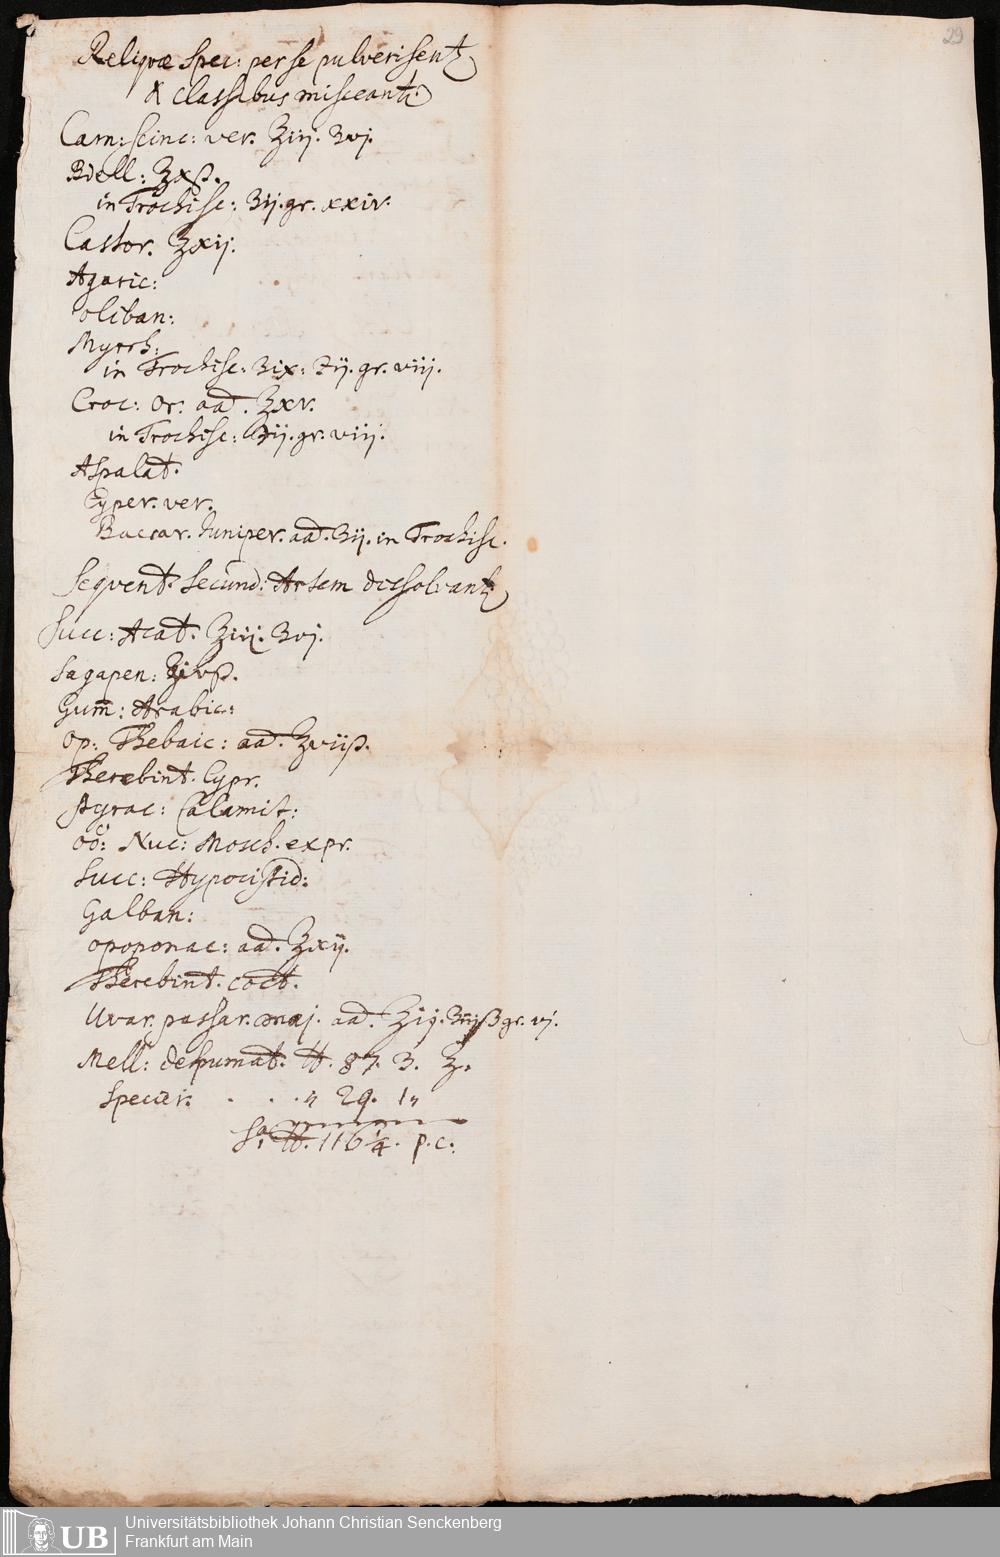 29
Reliqvæ Spec: per se pulverisent
& classibus misceant
Carn: scinc: ver. ℥iij. ʒvj.
Bdell: ℥xß.
in Trochisc: ʒij. gr. xxiv.
Castor. ℥xij.
Agaric:
Oliban:
Myrrh:
in Trochisc: ʒix: ℈ij. gr. viij.
Croc: Or. aā. ℥xv.
in Trochisc: ʒij. gr. viij.
Aspalat.
Cyper. ver.
Baccar. Juniper. aā. ʒij. in Trochisc.
Seqvent. Secund: Artem dissolvant
Succ: Acat. ℥iij. ʒvj.
Sagapen: ℥ivß.
Gum̄: Arabic:
Op: Thebaic: aā. ℥viiß.
Therebint. Cypr.
Styrac: Calamit:
Nuc: Mosch. expr.
Succ: Hypocistid:
Galban:
Opoponac: aā. ℥xij.
Therebint. coct.
Uvar. passar. maj. aā. gr. vj.
Mell: despumat. ℔. 87. 3. ℥.
Specier. . . . " 29. 1"
Sa. ℔. 116 1/4. p. c:
UB
Universitätsbibliothek Johann Christian Senckenberg
Frankfurt am Main